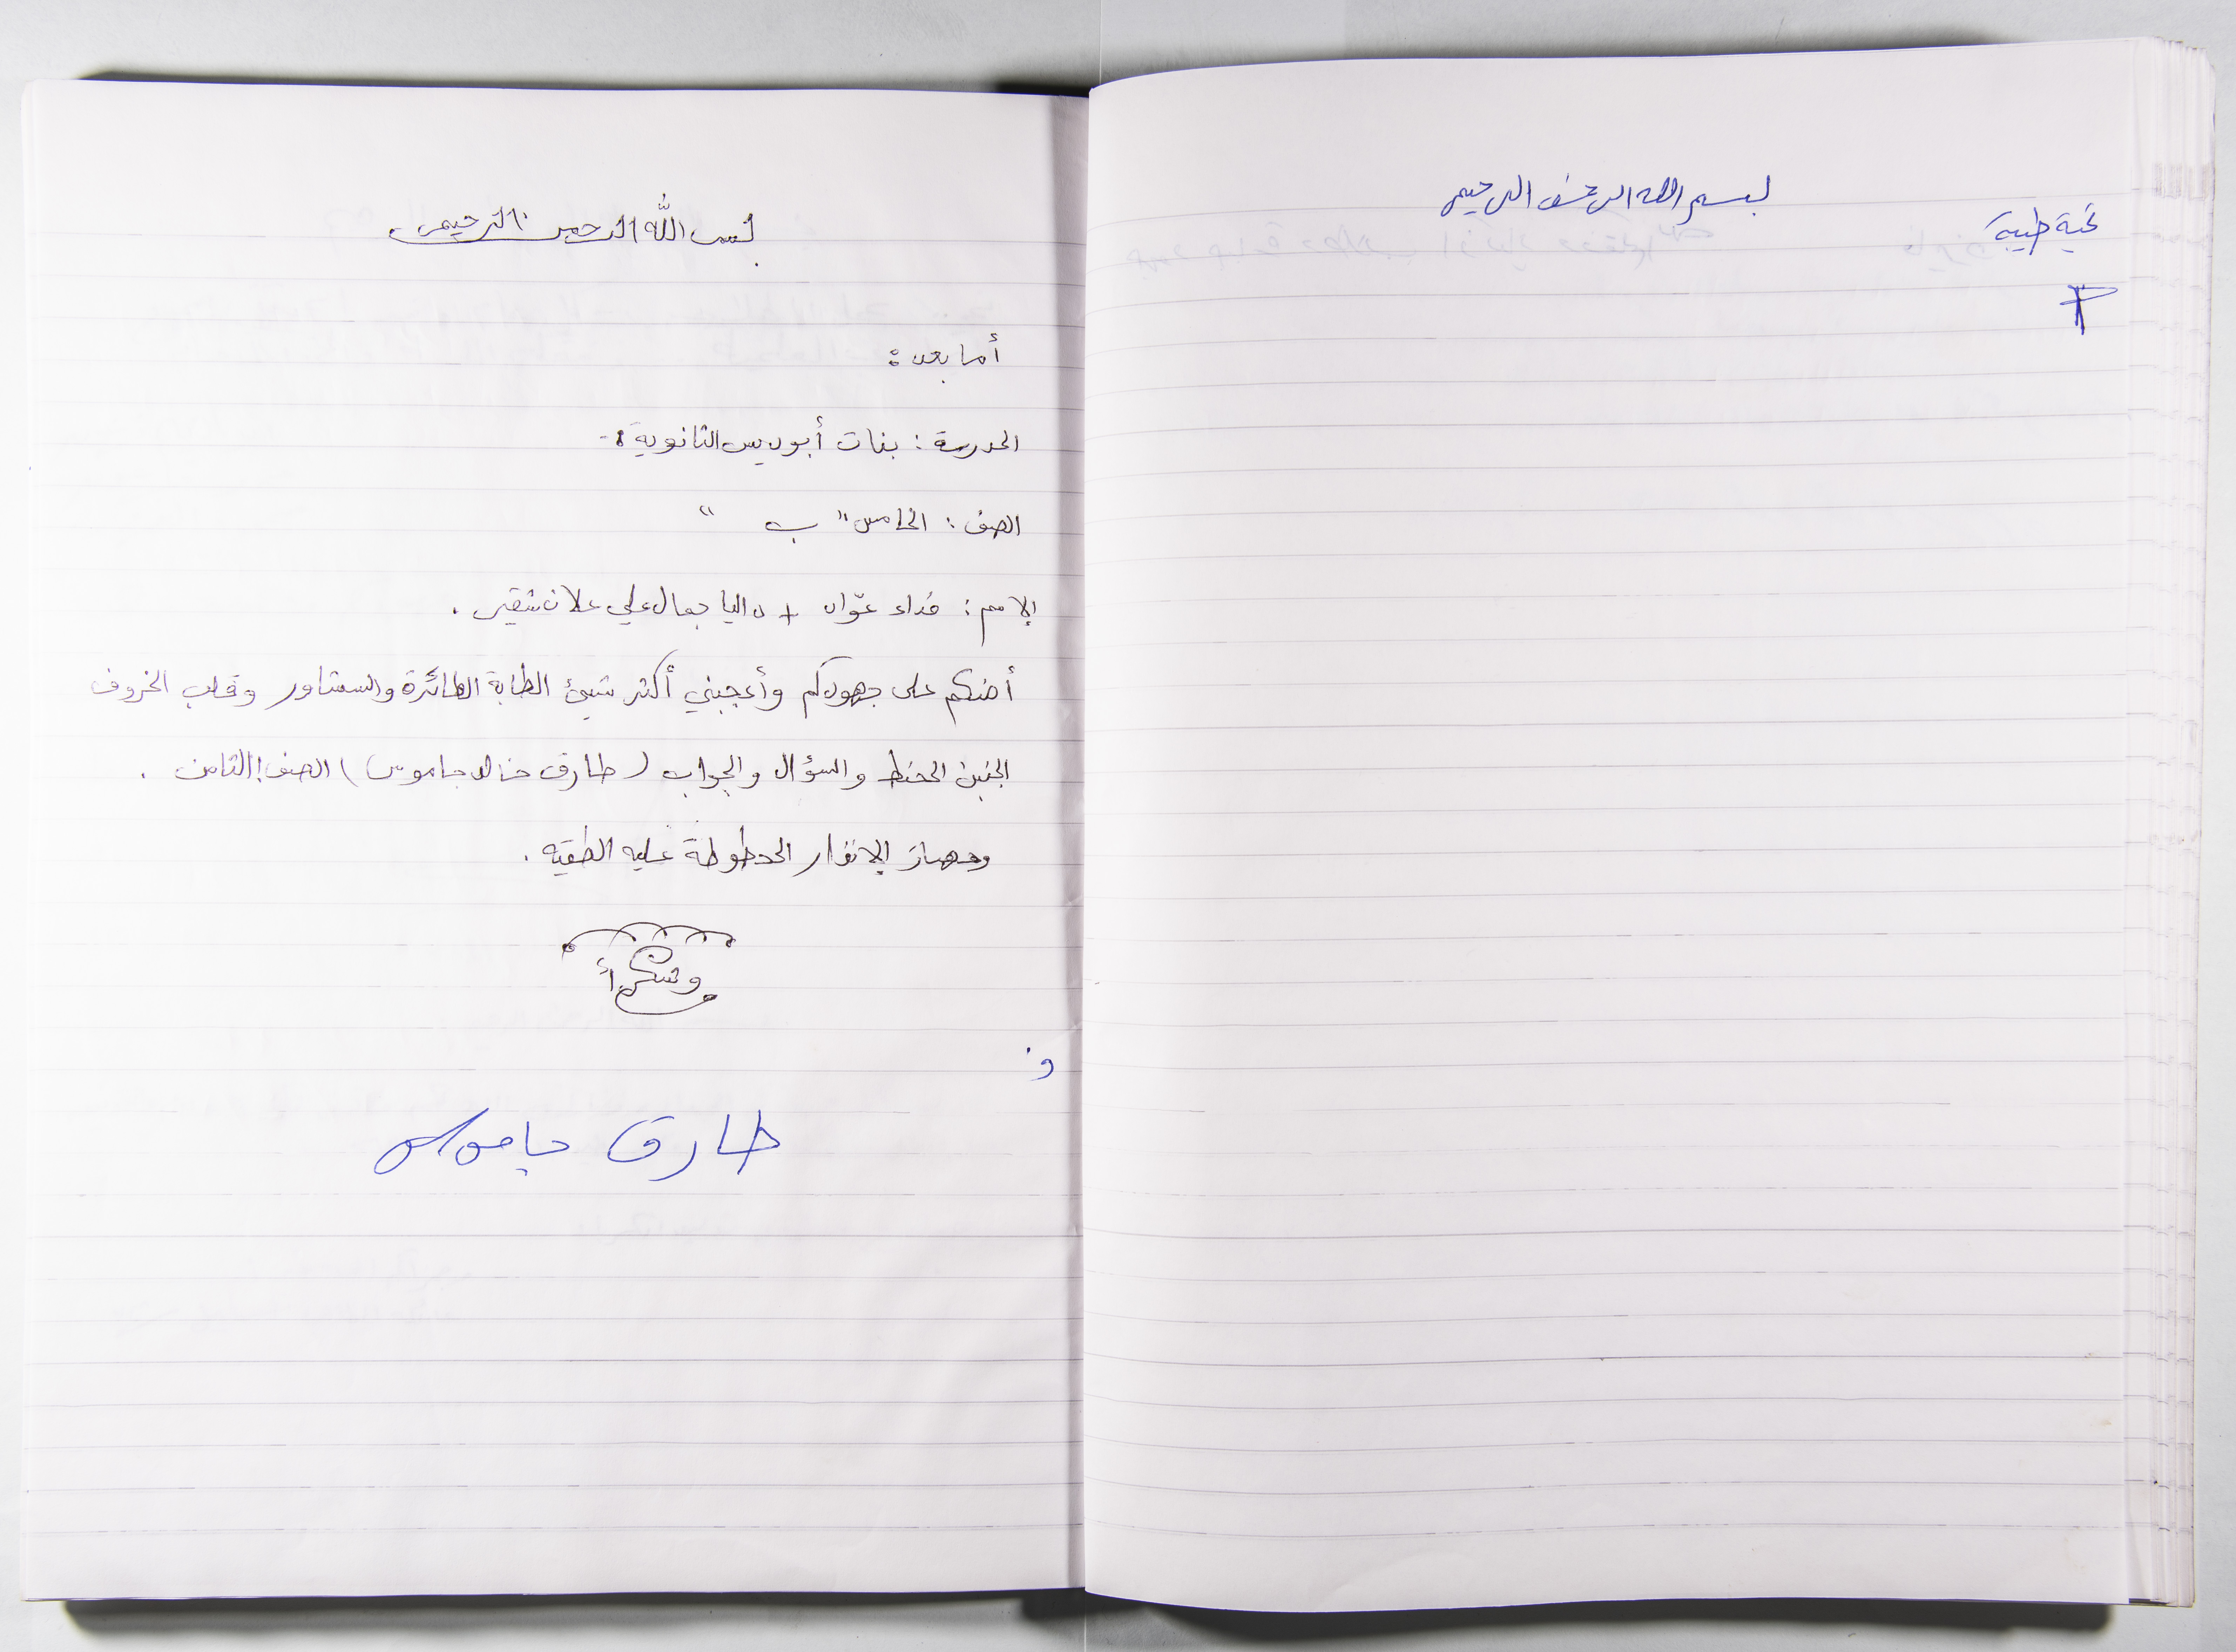 بسم الله الرحمن الرحيم
تحية طيبة
بسم الله الرحمن الرحيم
أما بعد :
المدرسة : بنات أبوديس الثانوية :-
الصف : الخامس " ب "
الإسم : فداء عوّاد + داليا جمال علي علان شقير .
أهنئكم على جهودكم وأعجبني أكثر شيئ الطابة الطائرة والسشاور وقلب الخروف
الجنين المحنط والسؤال والجواب ( طارق خالد جاموس ) الصف : الثامن .
وجهاز الإنذار المحطوطة عليه الطقيه .
وشكراً
و
طارق جاموس